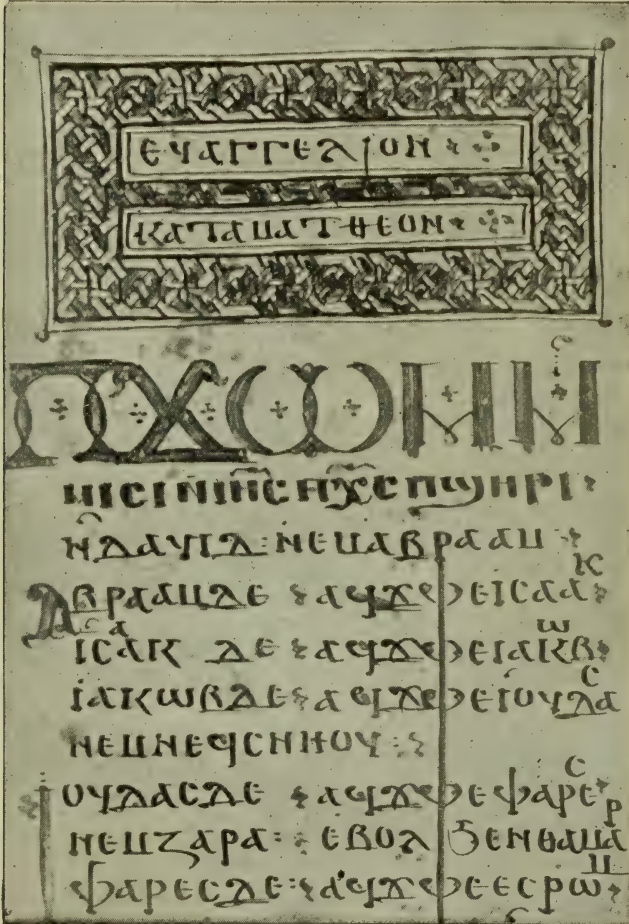 ⲉⲩⲁⲅⲅⲉⲗⲓⲟⲛ
ⲕⲁⲧⲁⲙⲁⲧⲑⲉⲟⲛ
ⲡϫⲱⲙⲙ
ⲙⲓⲥⲓⲛⲓⲏ̅ⲥ̅ ⲡⲭ̅ⲥ̅ ⲡϣⲏⲣⲓ
ⲛ̀ⲇⲁⲩⲓⲇ : ⲛⲉⲙⲁⲃⲣⲁⲁⲙ
ⲁⲃⲣⲁⲁⲙⲇⲉ ⲁϥϫⲫⲉⲓⲥⲁⲁⲕ
ⲓⲥⲁⲁⲕ ⲇⲉ ⲁϥϫⲫⲉⲓⲁⲕⲱⲃ
ⲓⲁⲕⲱⲃⲇⲉ ⲁϥϫⲫⲉⲓⲟⲩⲇⲁⲥ
ⲛⲉⲙⲛⲉϥⲥⲛⲏⲟⲩ :
ⲓⲟⲩⲇⲁⲥⲇⲉ ⲁϥϫⲫⲉ ⲫⲁⲣⲉⲥ
ⲛⲉⲙⲍⲁⲣⲁ : ⲉⲃⲟⲗ ϧⲉⲛⲑⲁⲙⲁⲣ
ⲫⲁⲣⲉⲥⲇⲉ : ⲁϥϫⲫⲉⲉⲥⲣⲱⲙ